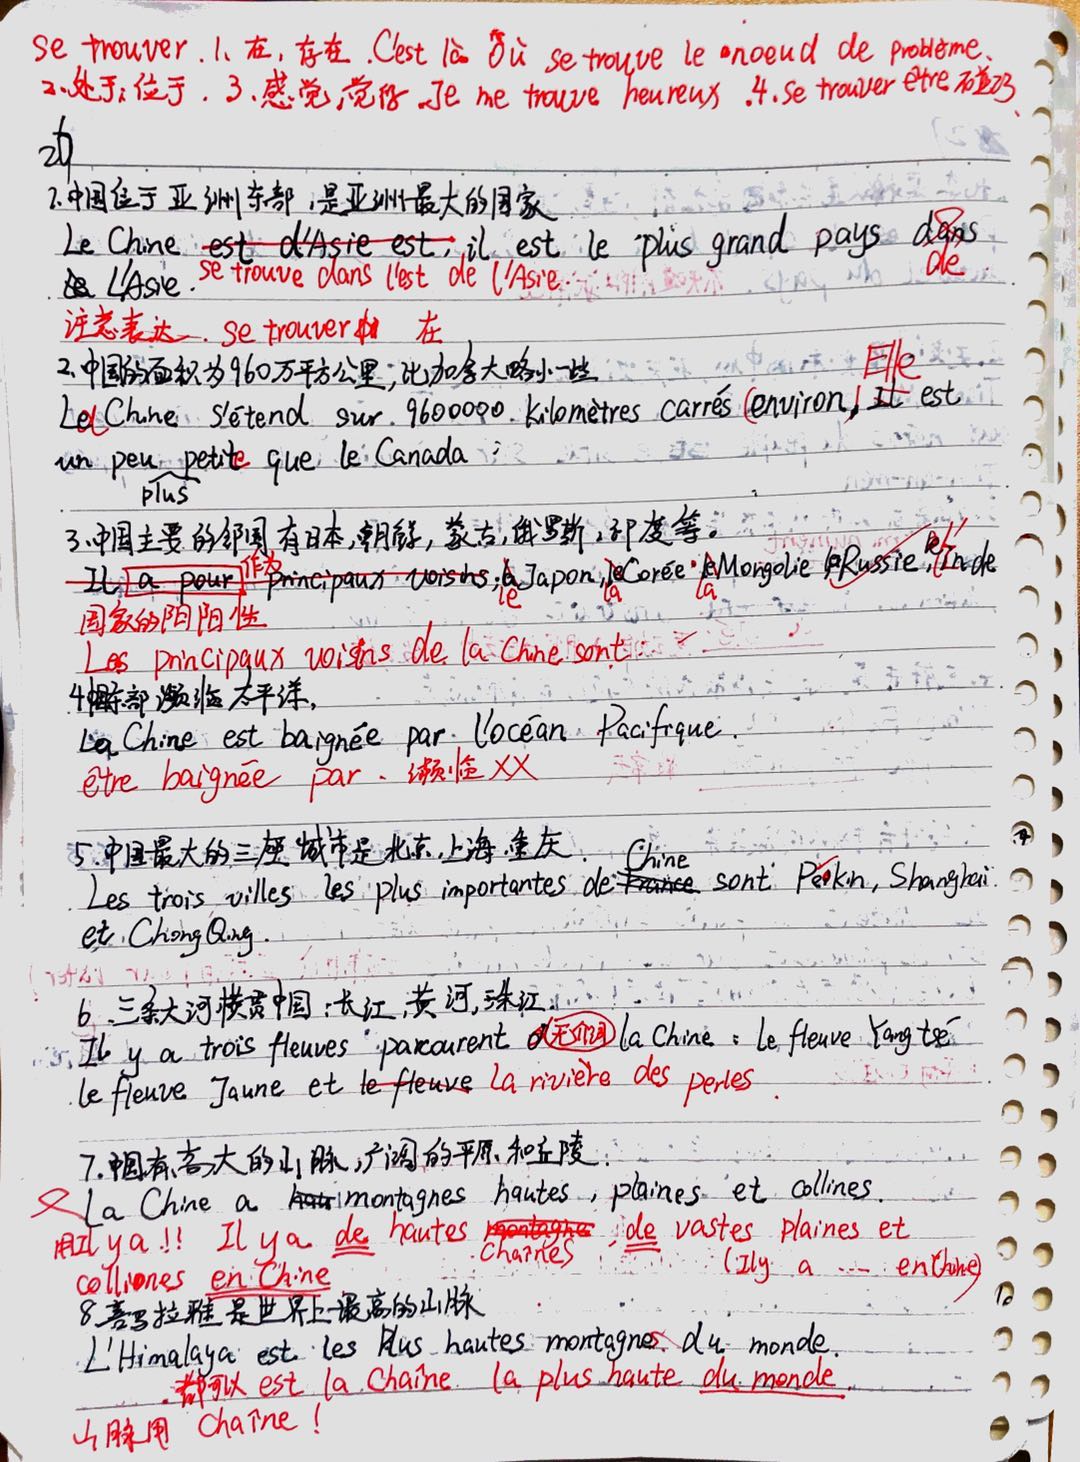 se trouver. 1. 在, 存在. C'est là Où se trouve le noeud de problème.
2. 处于; 位于. 3. 感觉, 觉得. Je me trouve heureux. 4. se trouver être 碰巧
1. 中国位于亚洲东部, 是亚洲最大的国家
Le Chine est d'Asie est, il est le plus grand pays dans
de
L'Asie. se trouve dans l'est de l'Asie.
注意表达. se trouver 在
2. 中国的面积为960万平方公里, 比加拿大略小一些
Elle
La Chine s'étend sur 9600000 kilomètres carrés (environ) Il est
un peu petite que le Canada
plus
3. 中国主要的邻国有日本, 朝鲜, 蒙古, 俄罗斯, 印度等。
Il a pour 作为 principaux voisins: Japon, Corée Mongolie Russie, l'Inde
le la la
国家的阴阳性
Les principaux voisins de la Chine sont
4. 中国东部濒临太平洋.
La Chine est baignée par l'océan Pacifique.
être baignée par. 濒临XX
5. 中国最大的三座城市是北京, 上海, 重庆.
Chine
Les trois villes les plus importantes de France sont Pékin, Shanghai
et ChongQing.
6. 三条大河横贯中国: 长江, 黄河, 珠江.
Il y a trois fleuves parcourent 无介词 la Chine: le fleuve Yangtsé
le fleuve Jaune et le fleuve la rivière des perles.
7. 中国有高大的山脉, 广阔的平原和丘陵.
La Chine a montagnes hautes, plaines et collines.
用Il y a!! Il y a de hautes montagnes, de vastes plaines et
chaînes
(Il y a ... en Chine)
colliones en Chine
8. 喜马拉雅是世界上最高的山脉
L'Himalaya est les plus hautes montagnes du monde.
都可以 est la chaîne la plus haute du monde.
山脉用 chaîne!